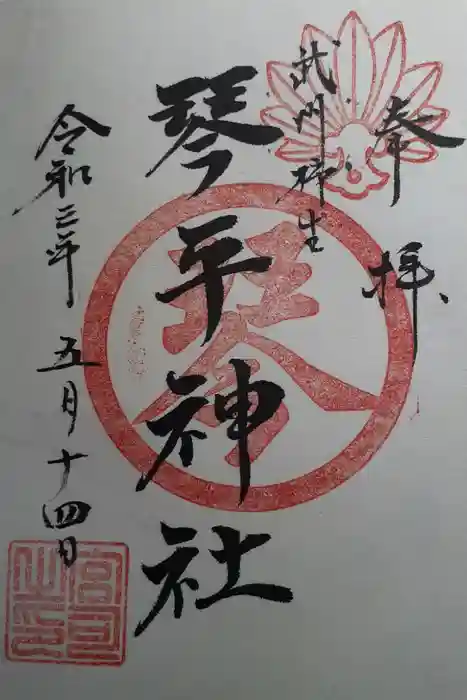 奉拝
武州柿生
琴平神社
令和三年五月十四日
宮司之印